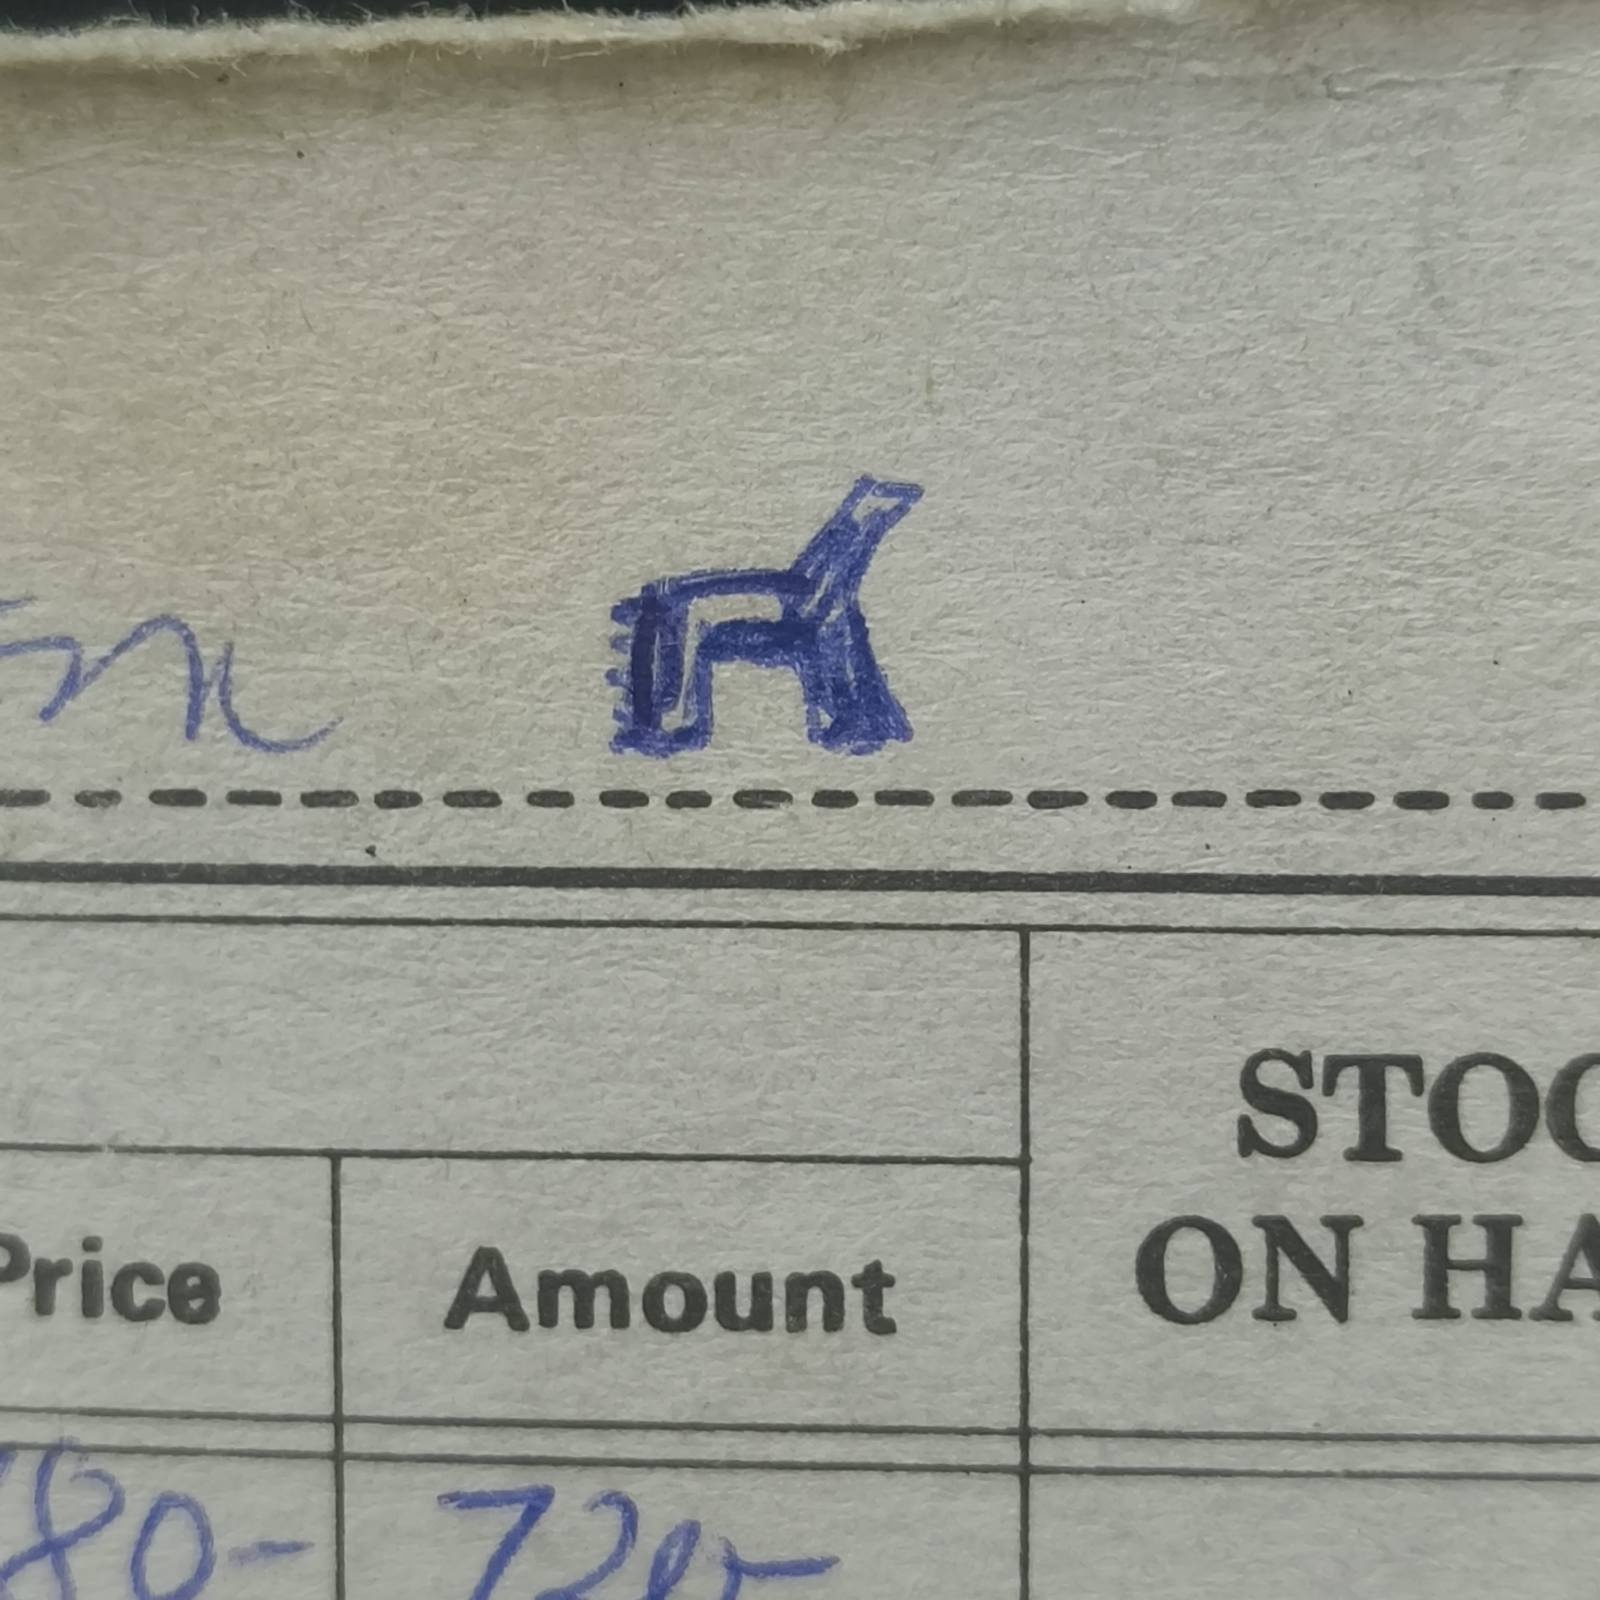 Price Amount STOC
ON HA
80- 720-